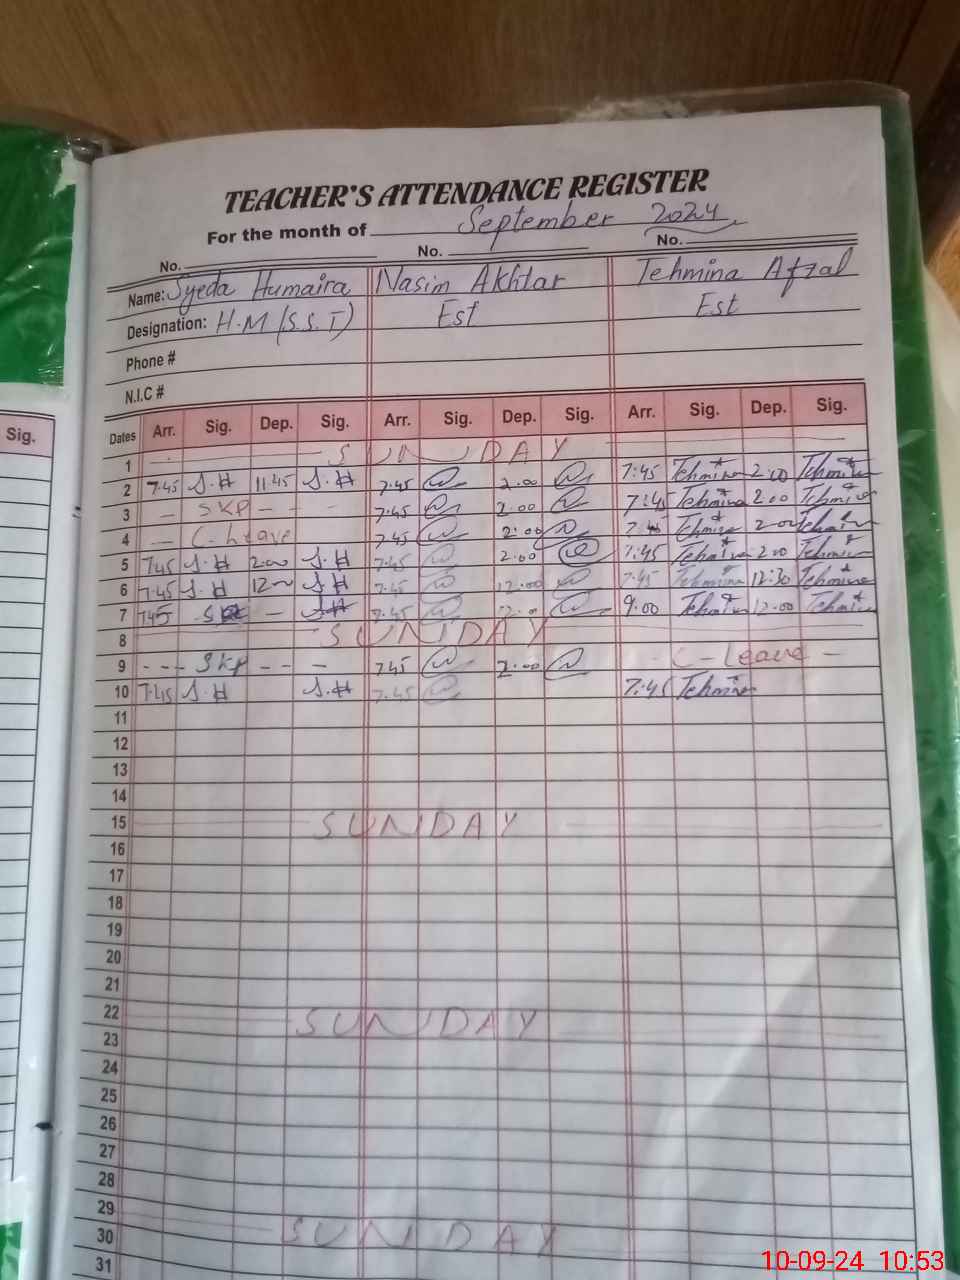 TEACHER'S ATTENDANCE REGISTER
For the month of September 2024
No. No. No.
Name: Syeda Humaira Nasim Akhtar Tehmina Afzal
Designation: H.M (S.S.T) Est Est
Phone #
N.I.C #
Sig.
Dates Arr. Sig. Dep. Sig. Arr. Sig. Dep. Sig. Arr. Sig. Dep. Sig.
1 SUNDAY
2 7:45 S.H 11:45 S.H 7:45 2:00 7:45 Tehmina 2:00 Tehmina
3 - SKP - - - 7:45 2:00 7:45 Tehmina 2.00 Tehmina
4 - C. Leave 7:45 2:00 Tehmina 2:00 Tehmina
5 7:45 S.H 2:00 S.H 7:45 2:00 7:45 Tehmina 2:00 Tehmina
6 7:45 S.H 12:00 S.H 7:45 12:00 7:45 Tehmina 12:30 Tehmina
7 7:45 - S.H 7:45 9:00 Tehmina 12:00 Tehmina
8 SUNDAY
9 - - - SKP - - - 7:45 2:00 - C-Leave -
10 7:45 S.H S.H 7:45 7:45 Tehmina
11
12
13
14
15 SUNDAY
16
17
18
19
20
21
22 SUNDAY
23
24
25
26
27
28
29
30 SUNDAY
31
10-09-24 10:53